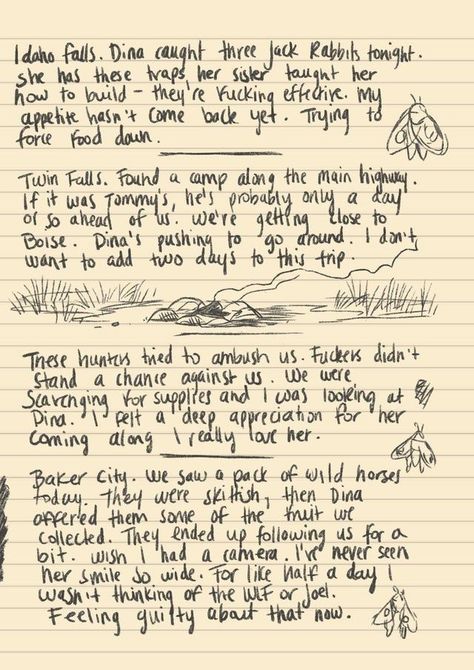 Idaho Falls. Dina caught three Jack Rabbits tonight.
she has these traps her sister taught her
how to build - they're fucking effective. My
appetite hasn't come back yet. Trying to
force food down.
Twin Falls. Found a camp along the main highway.
If it was Tommy's, he's probably only a day
or so ahead of us. We're getting close to
Boise. Dina's pushing to go around. I don't
want to add two days to this trip.
These hunters tried to ambush us. Fuckers didn't
stand a chance against us. We were
scavenging for supplies and I was looking at
Dina. I felt a deep appreciation for her
coming along I really love her.
Baker City. We saw a pack of wild horses
today. They were skittish, then Dina
offered them some of the fruit we
collected. They ended up following us for a
bit. Wish I had a camera. I've never seen
her smile so wide. For like half a day I
wasn't thinking of the WLF or Joel.
Feeling guilty about that now.